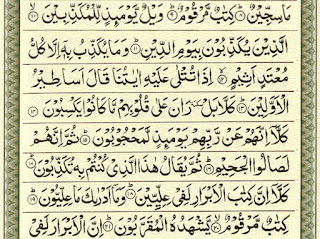 مَا سِجِّيْنٌ ۸ كِتٰبٌ مَّرْقُوْمٌ ۹ وَيْلٌ يَّوْمَئِذٍ لِّلْمُكَذِّبِيْنَ ۱۰
الَّذِيْنَ يُكَذِّبُوْنَ بِيَوْمِ الدِّيْنِ ۱۱ وَمَا يُكَذِّبُ بِهٖٓ اِلَّا كُلُّ
مُعْتَدٍ اَثِيْمٍ ۱۲ اِذَا تُتْلٰى عَلَيْهِ اٰيٰتُنَا قَالَ اَسَاطِيْرُ
الْاَوَّلِيْنَ ۱۳ كَلَّا بَلْ رَانَ عَلٰى قُلُوْبِهِمْ مَّا كَانُوْا يَكْسِبُوْنَ ۱۴
كَلَّآ اِنَّهُمْ عَنْ رَّبِّهِمْ يَوْمَئِذٍ لَّمَحْجُوْبُوْنَ ۱۵ ثُمَّ اِنَّهُمْ
لَصَالُوا الْجَحِيْمِ ۱۶ ثُمَّ يُقَالُ هٰذَا الَّذِيْ كُنْتُمْ بِهٖ تُكَذِّبُوْنَ ۱۷
كَلَّآ اِنَّ كِتٰبَ الْاَبْرَارِ لَفِيْ عِلِّيِّيْنَ ۱۸ وَمَآ اَدْرٰىكَ مَا عِلِّيُّوْنَ ۱۹
كِتٰبٌ مَّرْقُوْمٌ ۲۰ يَّشْهَدُهُ الْمُقَرَّبُوْنَ ۲۱ اِنَّ الْاَبْرَارَ لَفِيْ